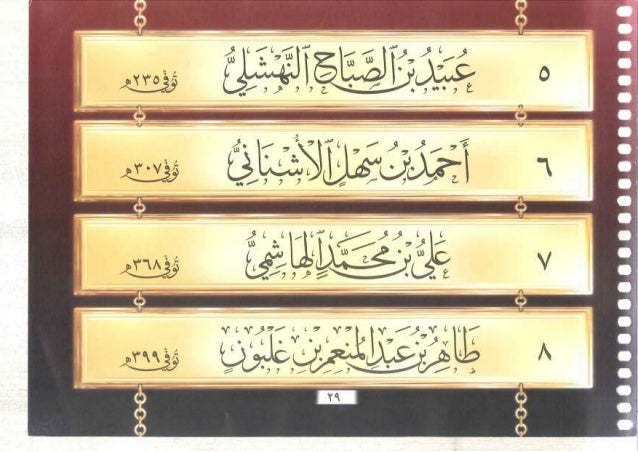 ٥ عُبَيْدُ بْنُ الصَّبَّاحِ النَّهْشَلِيُّ تُوُفِّيَ ٢٣٥هـ
٦ أَحْمَدُ بْنُ سَهْلٍ الْأُشْنَانِيُّ تُوُفِّيَ ٣٠٧هـ
٧ عَلِيُّ بْنُ مُحَمَّدٍ الْهَاشِمِيُّ تُوُفِّيَ ٣٦٨هـ
٨ طَاهِرُ بْنُ عَبْدِ الْمُنْعِمِ بْنِ غَلْبُونَ تُوُفِّيَ ٣٩٩هـ
٢٩